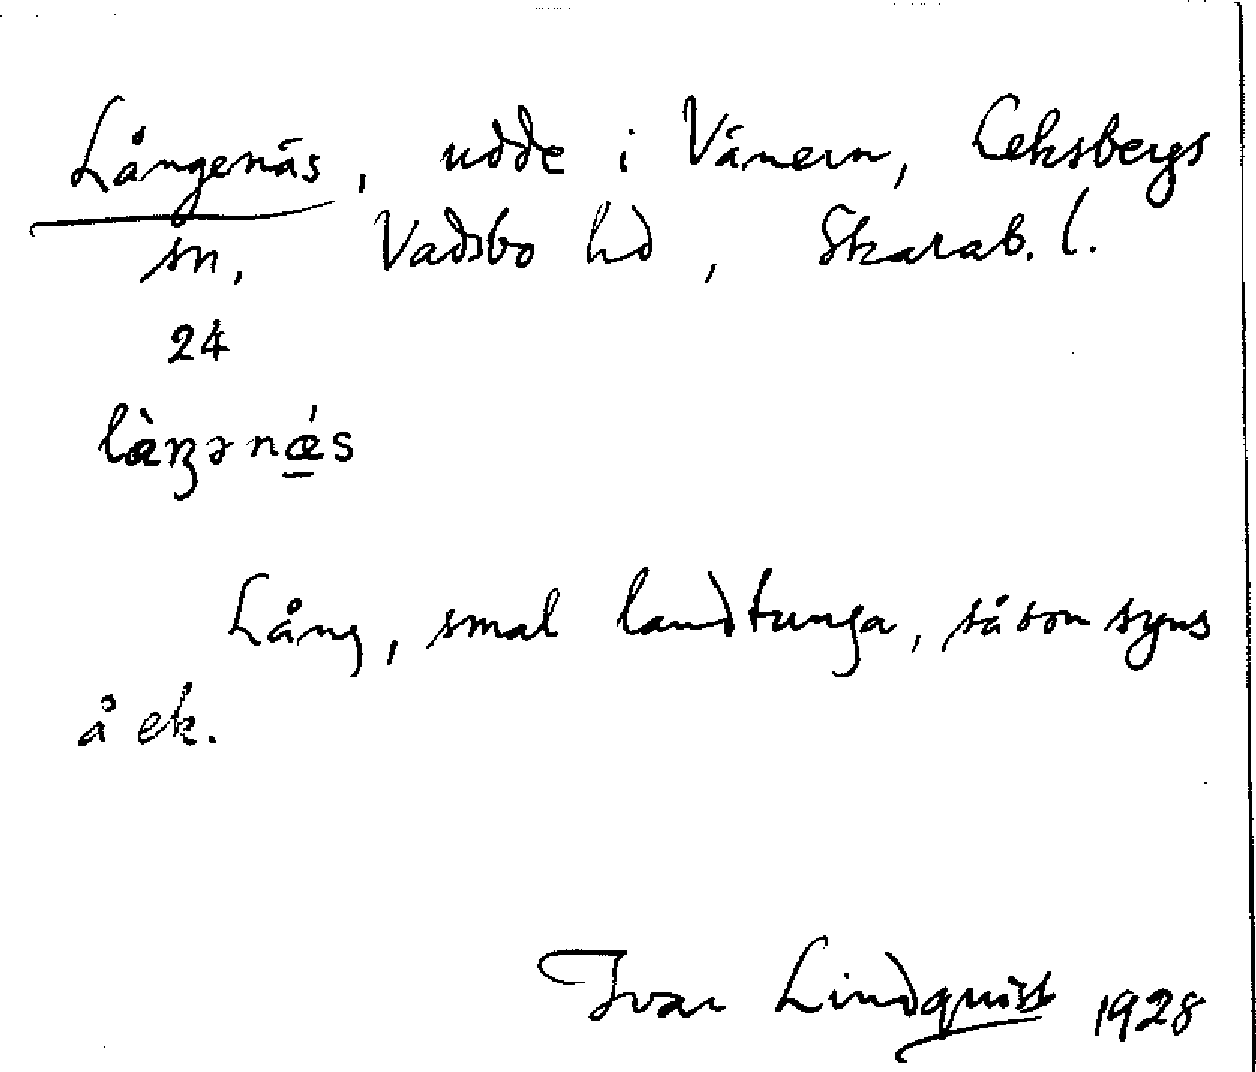 Långenäs, udde i Vänern, Leksbergs
sn, Vadsbo hd, Skarab. l.
24
làŋənǽs
Lång, smal landtunga, så som syns
å ek.
Ivar Lindquist 1928